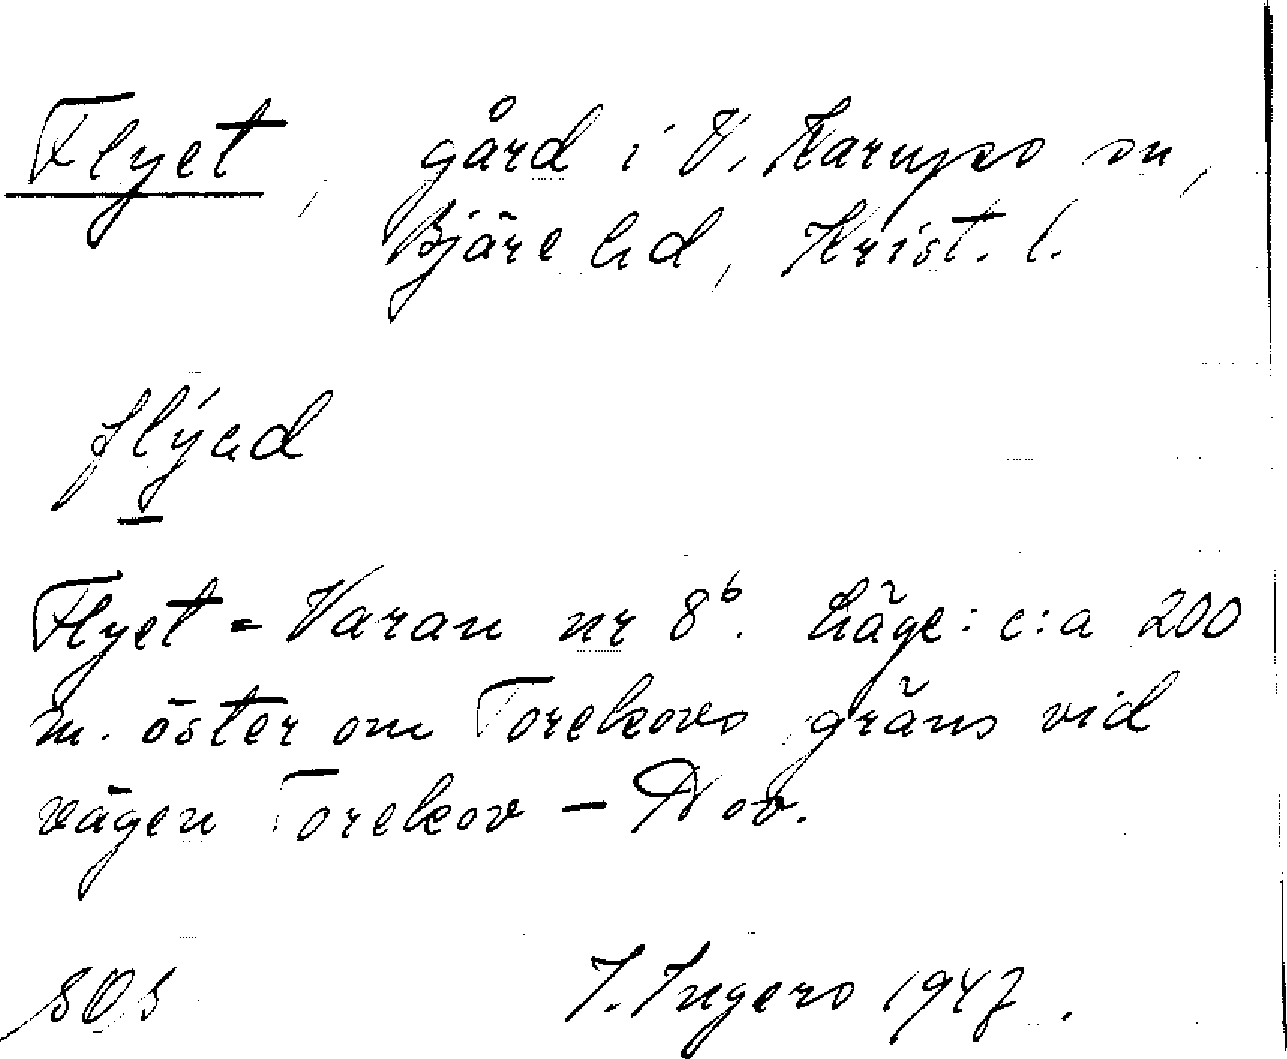 Flyet, gård i V. Karups sn,
Bjäre hd, Krist. l.
flýad
Flyet = Varan nr 8b. Läge: c:a 200
m. öster om Torekovs gräns vid
vägen Torekov – Ⱶov.
SOS I. Ingers 1947.